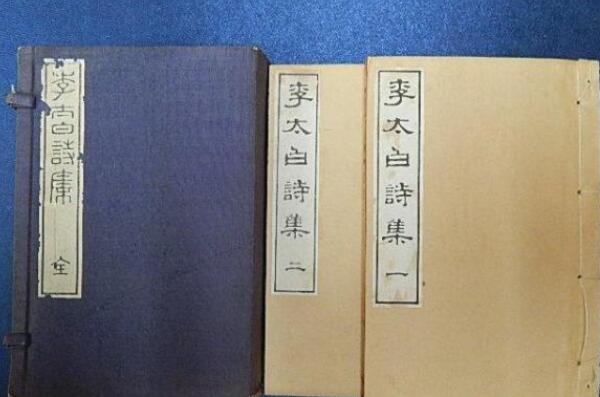 李太白詩集 一
李太白詩集 二
李太白詩集 全